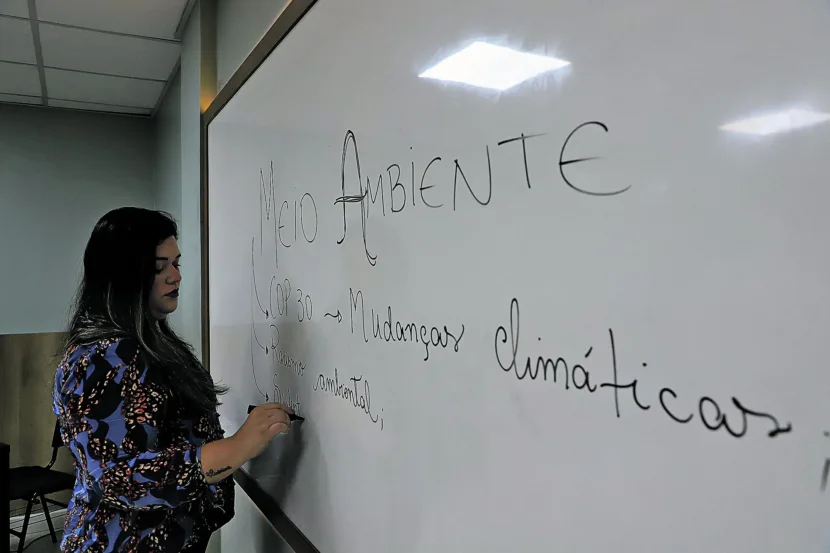 MEIO AMBIENTE
COP 30 → Mudanças climáticas
Racismo ambiental;